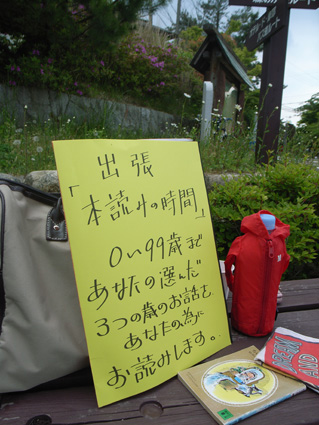 出張
「本読みの時間」
0〜99歳まで
あなたの選んだ
3つの歳のお話を
あなたの為に
お読みします。
AND